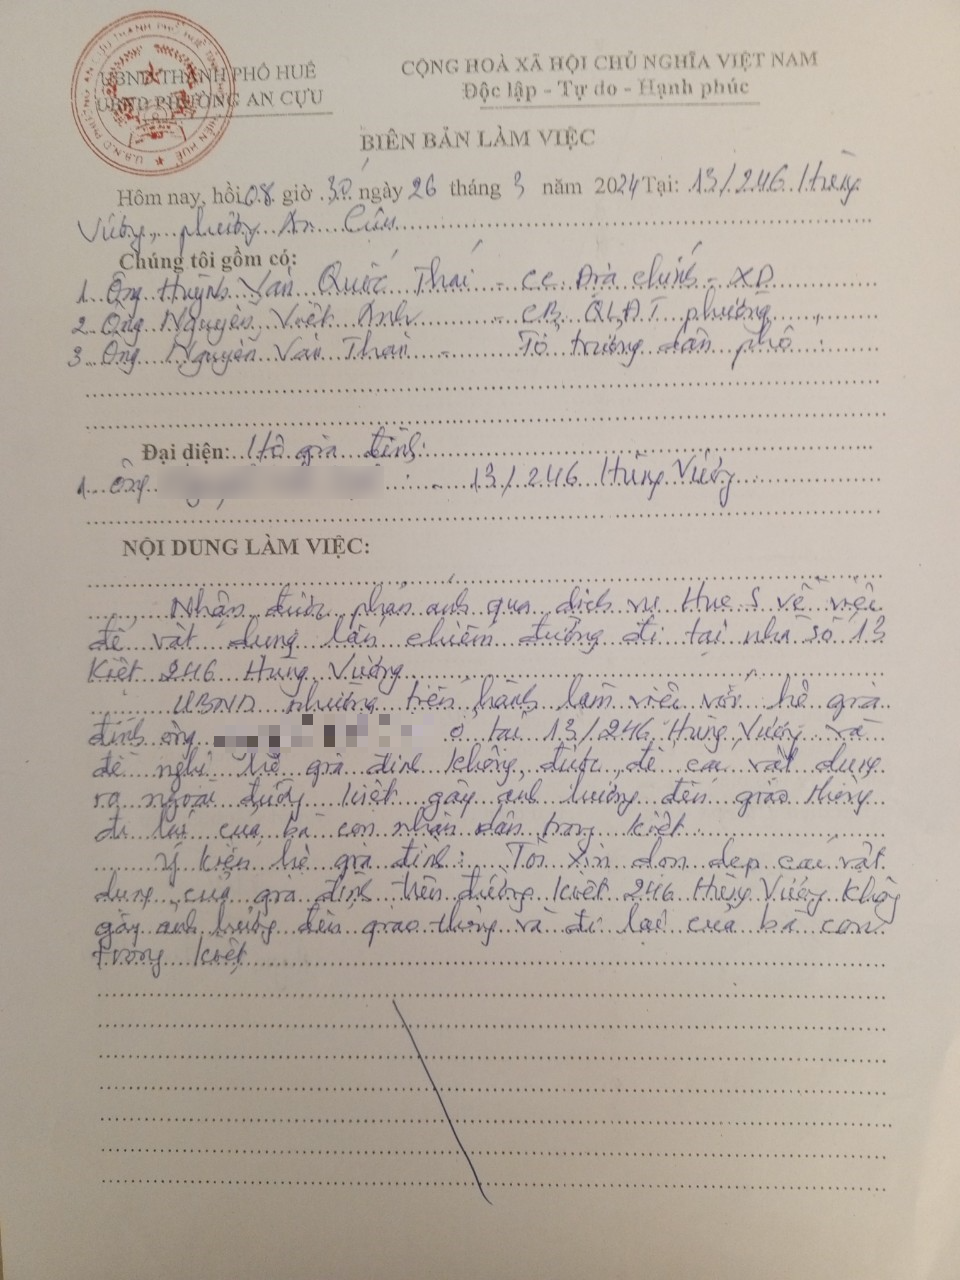 UBND THÀNH PHỐ HUẾ
UBND PHƯỜNG AN CỰU
CỘNG HOÀ XÃ HỘI CHỦ NGHĨA VIỆT NAM
Độc lập - Tự do - Hạnh phúc
BIÊN BẢN LÀM VIỆC
Hôm nay, hồi 08 giờ 30 ngày 26 tháng 3 năm 2024 Tại: 13/246 Hùng
Vương, phường An Cựu
Chúng tôi gồm có:
1. Ông Huỳnh Văn Quốc Thái - CC Địa chính - XD
2. Ông Nguyễn Việt Anh - CB QLĐT phường
3. Ông Nguyễn Văn Thai - Tổ trưởng dân phố
Đại diện: Hộ gia đình:
1. Ông : - 13/246 Hùng Vương
NỘI DUNG LÀM VIỆC:
Nhận được phản ánh qua dịch vụ Hue S về việc
để vật dụng lấn chiếm đường đi tại nhà số 13
Kiệt 246 Hùng Vương.
UBND phường tiến hành làm việc với hộ gia
đình ông ở tại 13/246 Hùng Vương và
đề nghị hộ gia đình không được để các vật dụng
ra ngoài đường kiệt gây ảnh hưởng đến giao thông
đi lại của bà con nhân dân trong kiệt.
Ý kiến hộ gia đình: Tôi xin dọn dẹp các vật
dụng của gia đình trên đường kiệt 246 Hùng Vương không
gây ảnh hưởng đến giao thông và đi lại của bà con
trong kiệt